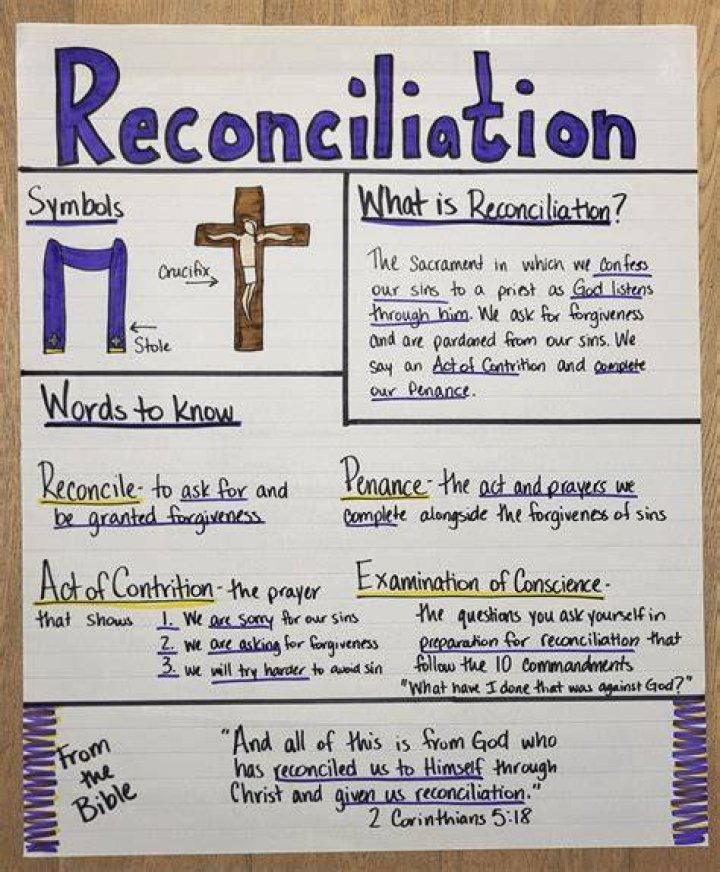 Reconciliation
Symbols
Crucifix
Stole
What is Reconciliation?
The Sacrament in which we confess
our sins to a priest as God listens
through him. We ask for forgiveness
and are pardoned from our sins. We
say an Act of Contrition and complete
our Penance.
Words to Know
Reconcile- to ask for and
be granted forgiveness
Penance- the act and prayers we
complete alongside the forgiveness of sins
Act of Contrition- the prayer
that shows 1. We are sorry for our sins
2. we are asking for forgiveness
3. we will try harder to avoid sin
Examination of Conscience-
the questions you ask yourself in
preparation for reconciliation that
follow the 10 commandments
"What have I done that was against God?"
From
the
Bible
"And all of this is from God who
has reconciled us to Himself through
Christ and given us reconciliation."
2 Corinthians 5:18